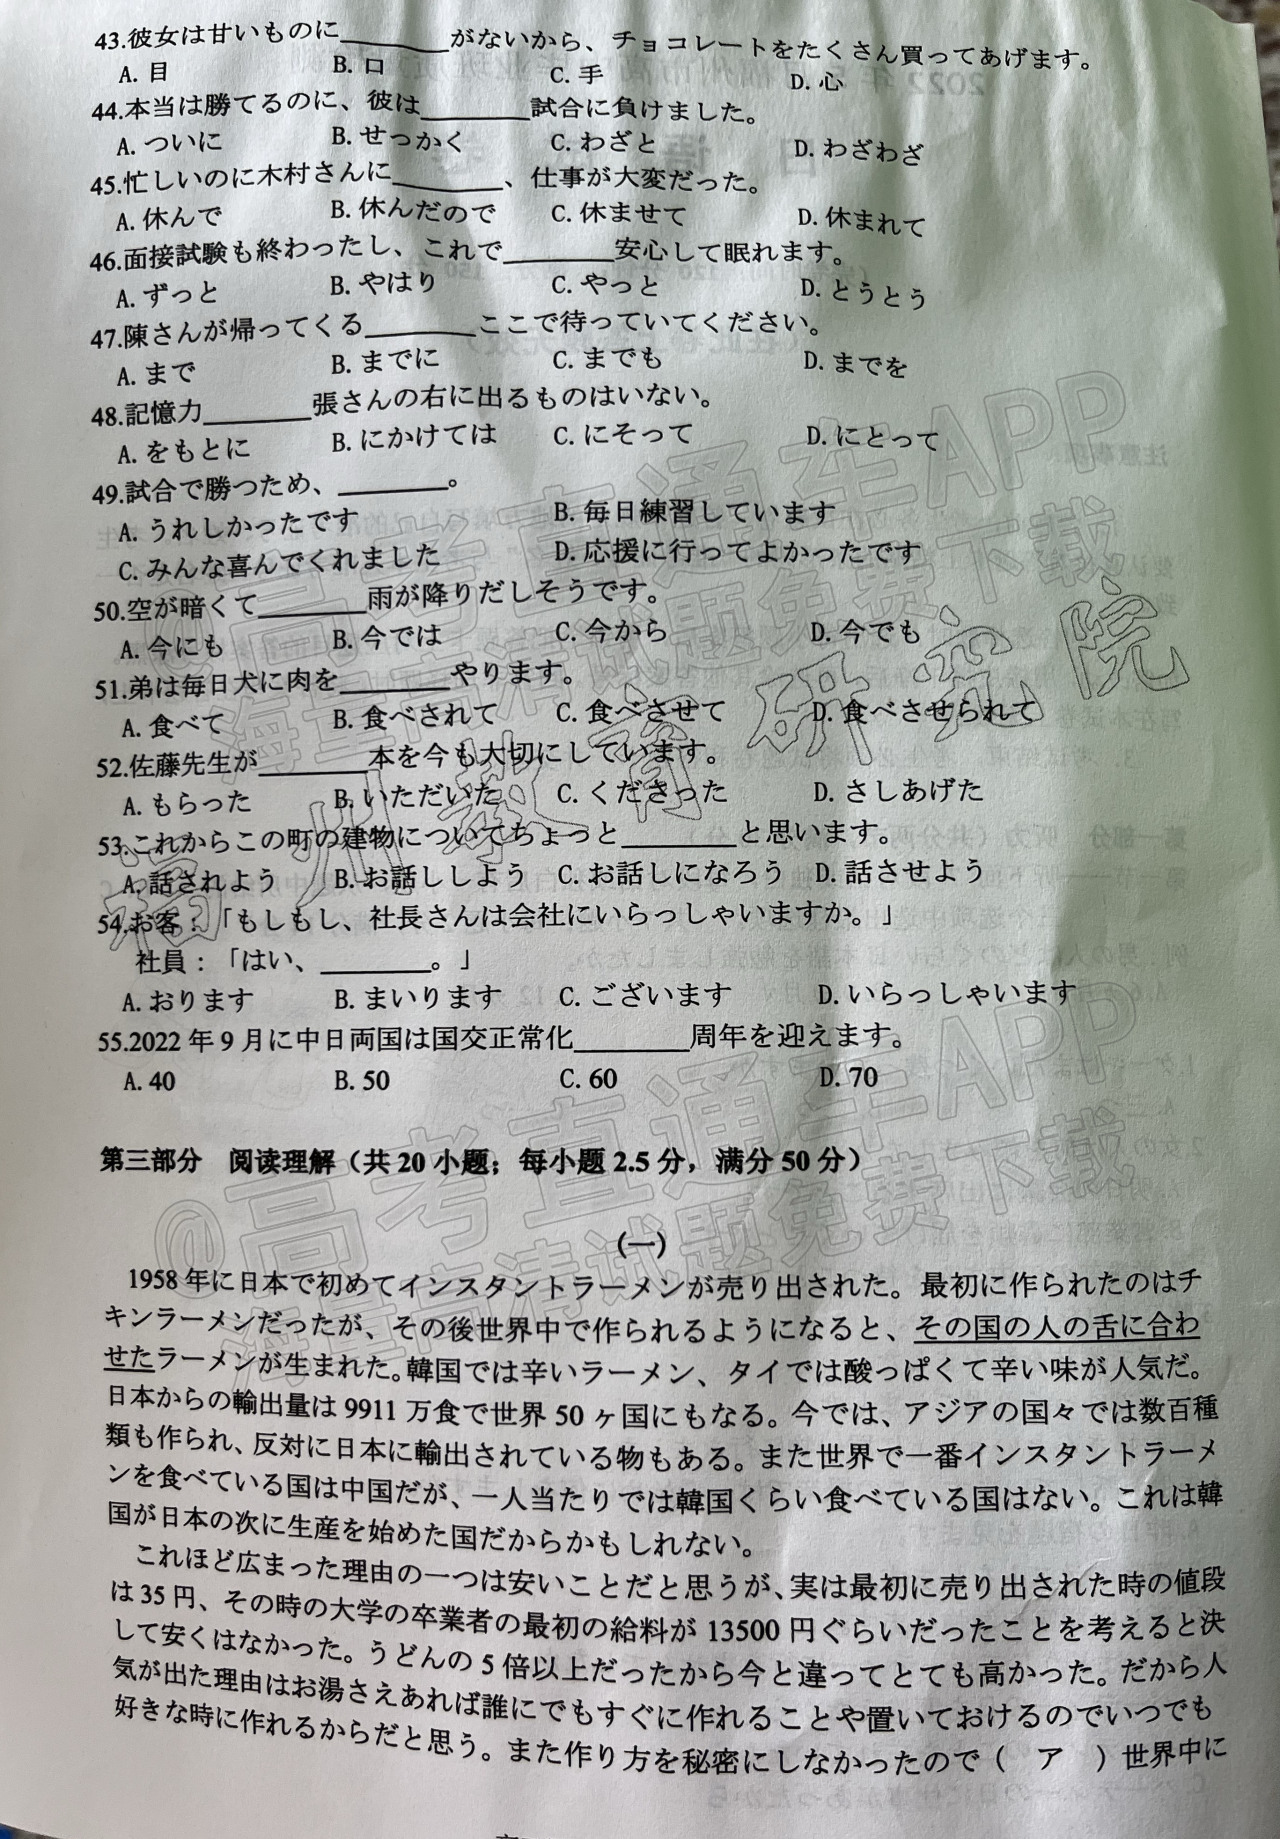 43.彼女は甘いものに________がないから、チョコレートをたくさん買ってあげます。
A. 目 B. 口 C. 手 D. 心
44.本当は勝てるのに、彼は________試合に負けました。
A. ついに B. せっかく C. わざと D. わざわざ
45.忙しいのに木村さんに________、仕事が大変だった。
A. 休んで B. 休んだので C. 休ませて D. 休まれて
46.面接試験も終わったし、これで________安心して眠れます。
A. ずっと B. やはり C. やっと D. とうとう
47.陳さんが帰ってくる________ここで待っていてください。
A. まで B. までに C. までも D. までを
48.記憶力________張さんの右に出るものはいない。
A. をもとに B. にかけては C. にそって D. にとって
49.試合で勝つため、________。
A. うれしかったです B. 毎日練習しています
C. みんな喜んでくれました D. 応援に行ってよかったです
50.空が暗くて________雨が降りだしそうです。
A. 今にも B. 今では C. 今から D. 今でも
51.弟は毎日犬に肉を________やります。
A. 食べて B. 食べされて C. 食べさせて D. 食べさせられて
52.佐藤先生が________本を今も大切にしています。
A. もらった B. いただいた C. くださった D. さしあげた
53.これからこの町の建物についてちょっと________と思います。
A. 話されよう B. お話ししよう C. お話しになろう D. 話させよう
54.お客：「もしもし、社長さんは会社にいらっしゃいますか。」
社員：「はい、________。」
A. おります B. まいります C. ございます D. いらっしゃいます
55.2022 年 9 月に中日両国は国交正常化________周年を迎えます。
A. 40 B. 50 C. 60 D. 70
第三部分 阅读理解（共 20 小题；每小题 2.5 分，满分 50 分）
（一）
1958 年に日本で初めてインスタントラーメンが売り出された。最初に作られたのはチ
キンラーメンだったが、その後世界中で作られるようになると、その国の人の舌に合わ
せたラーメンが生まれた。韓国では辛いラーメン、タイでは酸っぱくて辛い味が人気だ。
日本からの輸出量は 9911 万食で世界 50 ヶ国にもなる。今では、アジアの国々では数百種
類も作られ、反対に日本に輸出されている物もある。また世界で一番インスタントラーメ
ンを食べている国は中国だが、一人当たりでは韓国くらい食べている国はない。これは韓
国が日本の次に生産を始めた国だからかもしれない。
これほど広まった理由の一つは安いことだと思うが、実は最初に売り出された時の値段
は 35 円、その時の大学の卒業者の最初の給料が 13500 円ぐらいだったことを考えると決
して安くはなかった。うどんの 5 倍以上だったから今と違ってとても高かった。だから人
気が出た理由はお湯さえあれば誰にでもすぐに作れることや置いておけるのでいつでも
好きな時に作れるからだと思う。また作り方を秘密にしなかったので（ ア ）世界中に
@高考直通车APP
海量高清试题免费下载
福州教育研究院
@高考直通车APP
海量高清试题免费下载